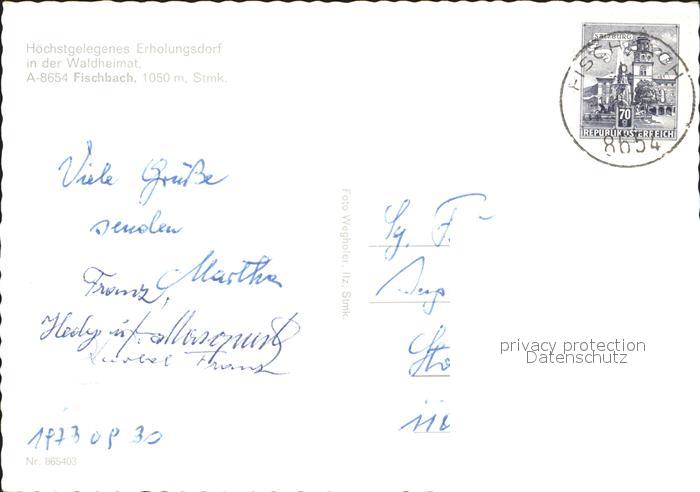 Höchstgelegenes Erholungsdorf
in der Waldheimat,
A-8654 Fischbach, 1050 m, Stmk.
SALZBURG
70
REPUBLIK ÖSTERREICH
FISCHBACH
8654
Viele Grüße
senden
Franz, Martha
Hedy u.
Franz
1973 09 30
Nr. 865403
Foto Weghofer, Ilz, Stmk.
Sg. F.
privacy protection
Datenschutz